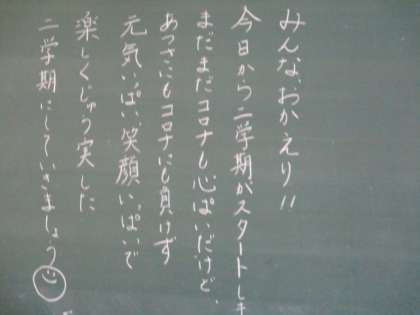 みんな、おかえり!!
今日から二学期がスタートしま
まだまだコロナも心ぱいだけど、
あつさにもコロナにも負けず
元気いっぱい、笑顔いっぱいで
楽しくじゅう実した
二学期にしていきましょう